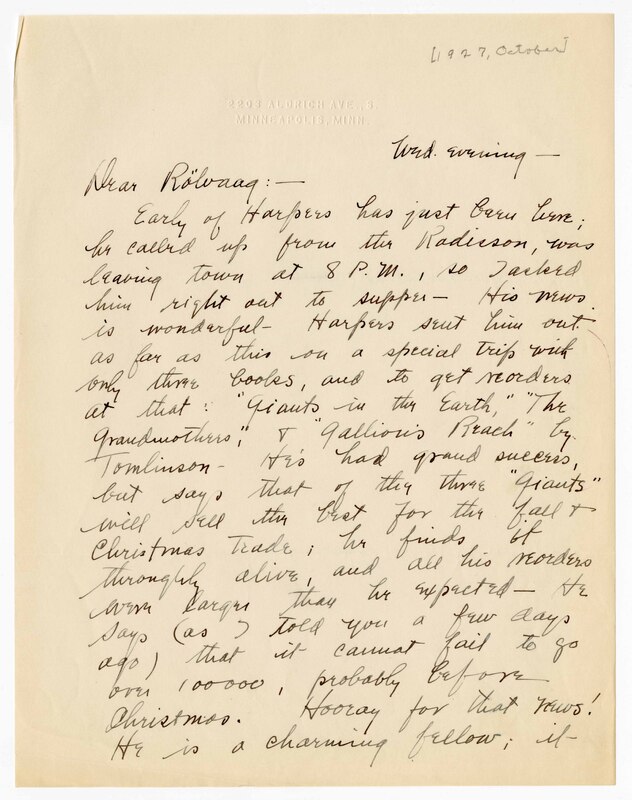 [1927, October]
2203 ALDRICH AVE., S.
MINNEAPOLIS, MINN.
Wed. evening —
Dear Rölvaag: —
Early of Harpers has just been here;
he called up from the Radisson, was
leaving town at 8 P.M., so I asked
him right out to supper — His news
is wonderful — Harpers sent him out
as far as this on a special trip with
only three books, and to get reorders
at that: "Giants in the Earth," "The
Grandmothers", & "Gallions Reach" by
Tomlinson — He's had grand success,
but says that of the three "Giants"
will sell the best for the fall &
Christmas trade; he finds it
throughly alive, and all his reorders
were larger than he expected — He
says (as I told you a few days
ago) that it cannot fail to go
over 100000, probably before
Christmas. Hooray for that news!
He is a charming fellow; it